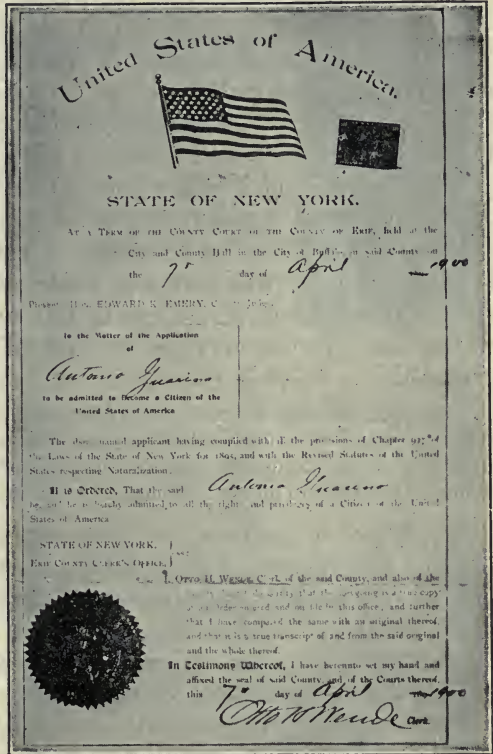 United States of America.
STATE OF NEW YORK.
AT A TERM OF THE COUNTY COURT OF THE COUNTY OF ERIE, held at the
City and County Hall in the City of Buffalo, in said County on
the 7" day of April 1900
Present Hon. EDWARD K. EMERY, County Judge.
In the Matter of the Application
of
Antonio Guarino
to be admitted to Become a Citizen of the
United States of America
The above named applicant having complied with all the provisions of Chapter 927 of
the Laws of the State of New York for 1895, and with the Revised Statutes of the United
States respecting Naturalization.
It is Ordered, That the said Antonio Guarino
be, and he is hereby admitted to all the rights and privileges of a Citizen of the United
States of America
STATE OF NEW YORK, }
ERIE COUNTY CLERK'S OFFICE, } ss:
I, OTTO H. WENDE, Clerk of the said County, and also of the
County Court do certify that the foregoing is a true copy
of an order entered and on file in this office, and further
that I have compared the same with an original thereof,
and that it is a true transcript of and from the said original
and the whole thereof.
In Testimony Whereof, I have hereunto set my hand and
affixed the seal of said County and of the Courts thereof,
this 7" day of April 1900
Otto H Wende Clerk